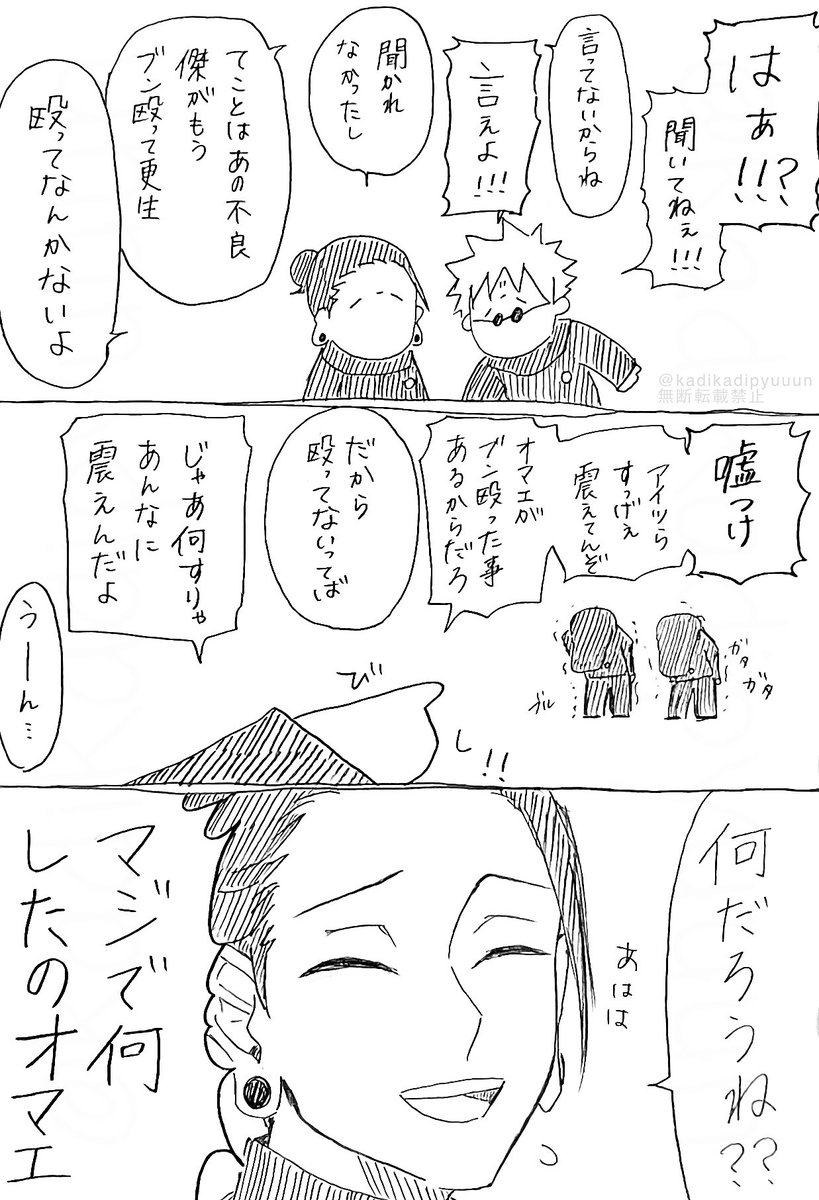 はぁ!!?
聞いてねぇ!!!
言ってないからね
言えよ!!!
聞かれ
なかったし
てことはあの不良
傑がもう
ブン殴って更生
殴ってなんかないよ
@kadikadipyuuun
無断転載禁止
嘘つけ
アイツら
すっげぇ
震えてんぞ
オマエが
ブン殴った事
あるからだろ
だから
殴ってないってば
じゃあ何すりゃ
あんなに
震えんだよ
ガタ
ガタ
ブル
びし!!
うーん…
何だろうね??
あはは
マジで何
したのオマエ